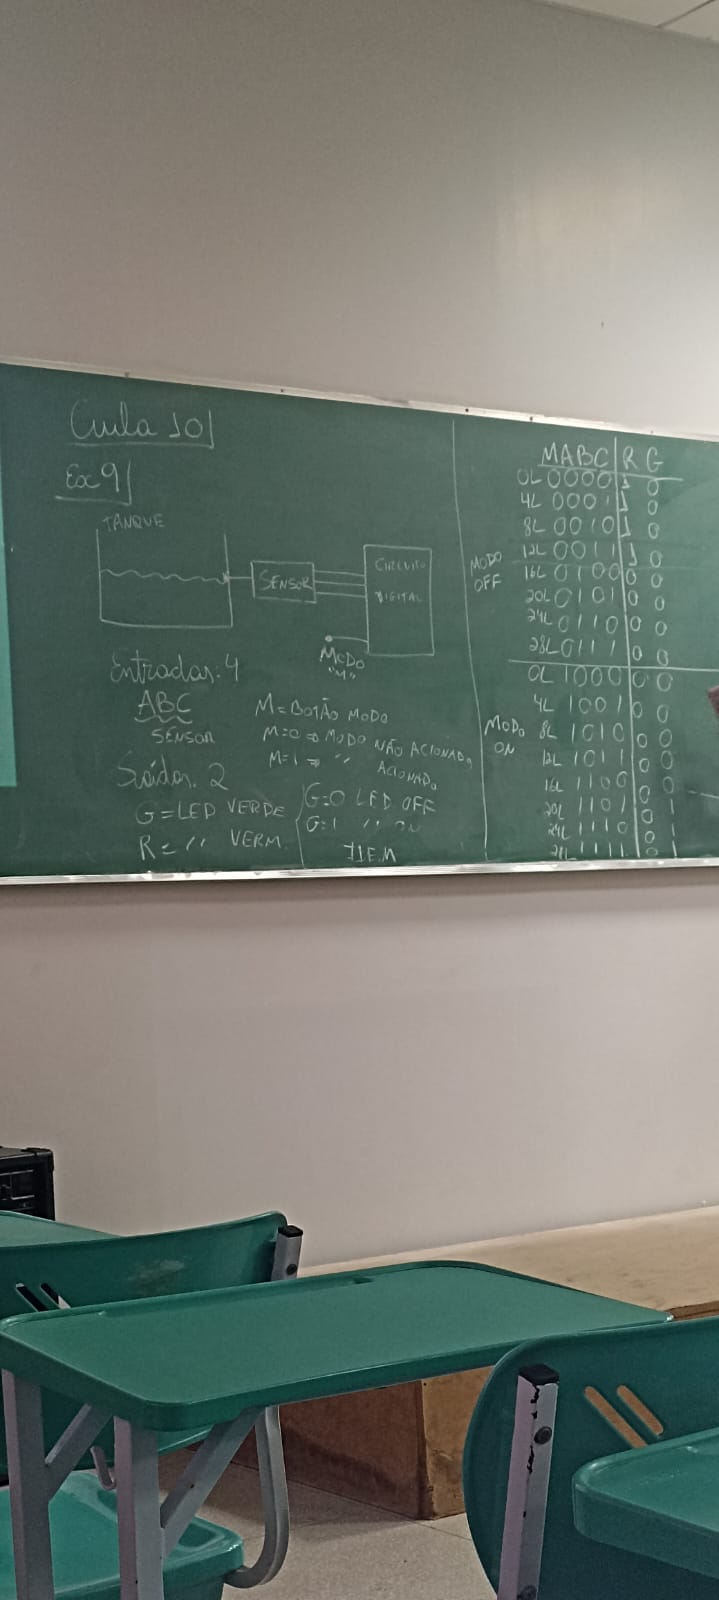 Aula 10
Ex 9
TANQUE
SENSOR
CIRCUITO
DIGITAL
MODO
"M"
Entradas: 4
ABC
SENSOR
M = BOTÃO MODO
M=0 ⇒ MODO NÃO ACIONADO
M=1 ⇒ " ACIONADO
Saídas: 2
G = LED VERDE
R = " VERM
G=0 LED OFF
G=1 " ON
MABC R G
0L 0000 1 0
4L 0001 1 0
8L 0010 1 0
12L 0011 1 0
MODO
OFF
16L 0100 0 0
20L 0101 0 0
24L 0110 0 0
28L 0111 0 0
0L 1000 0 0
4L 1001 0 0
MODO
ON
8L 1010 0 0
12L 1011 0 0
16L 1100 0 0
20L 1101 0 1
24L 1110 0 1
28L 1111 0 1